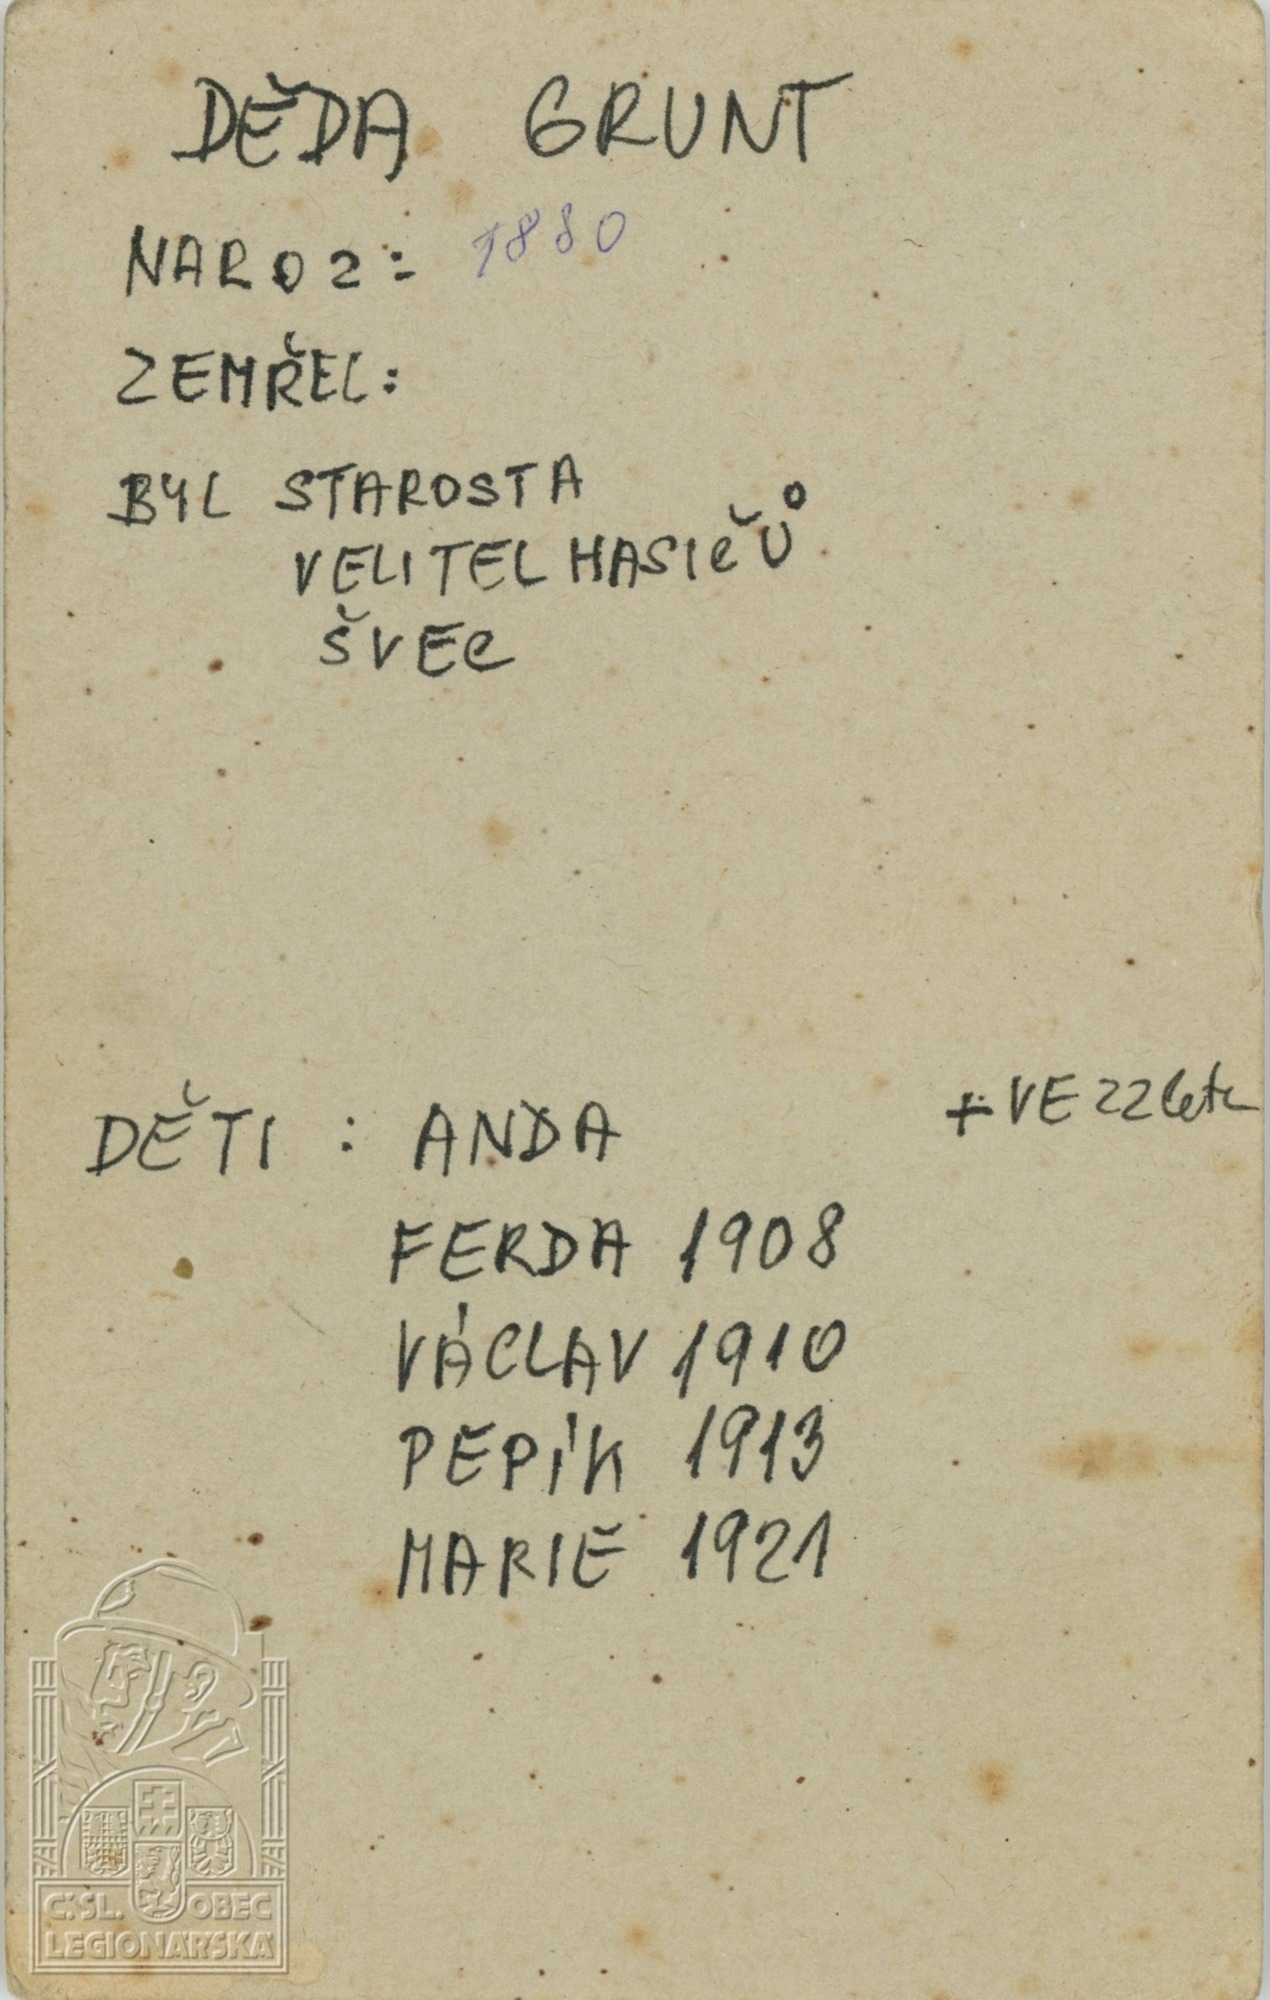 DĚDA GRUNT
NAROZ: 1880
ZEMŘEL:
BYL STAROSTA
VELITEL HASIČŮ
ŠVEC
DĚTI : ANDA + VE 22 letech
FERDA 1908
VÁCLAV 1910
PEPÍK 1913
MARIE 1921
Č.SL. OBEC
LEGIONÁŘSKÁ